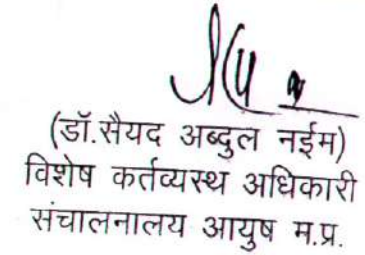 (डॉ.सैयद अब्दुल नईम)
विशेष कर्तव्यस्थ अधिकारी
संचालनालय आयुष म.प्र.